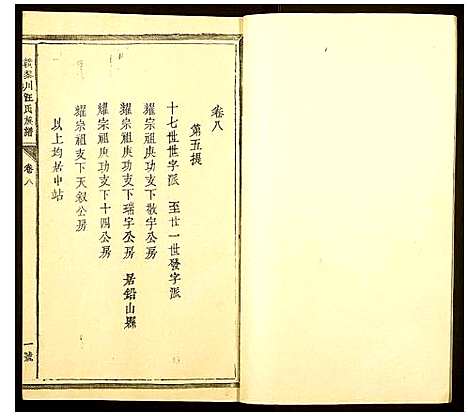 卷八
第五提
十七世世字派　至廿一世發字派
耀宗祖庚功支下敬字公房
耀宗祖庚功支下瑞字公房　居鉛山縣
耀宗祖庚功支下十四公房
耀宗祖支下天叙公房
以上均居中站
川汪氏族譜
卷八
一號